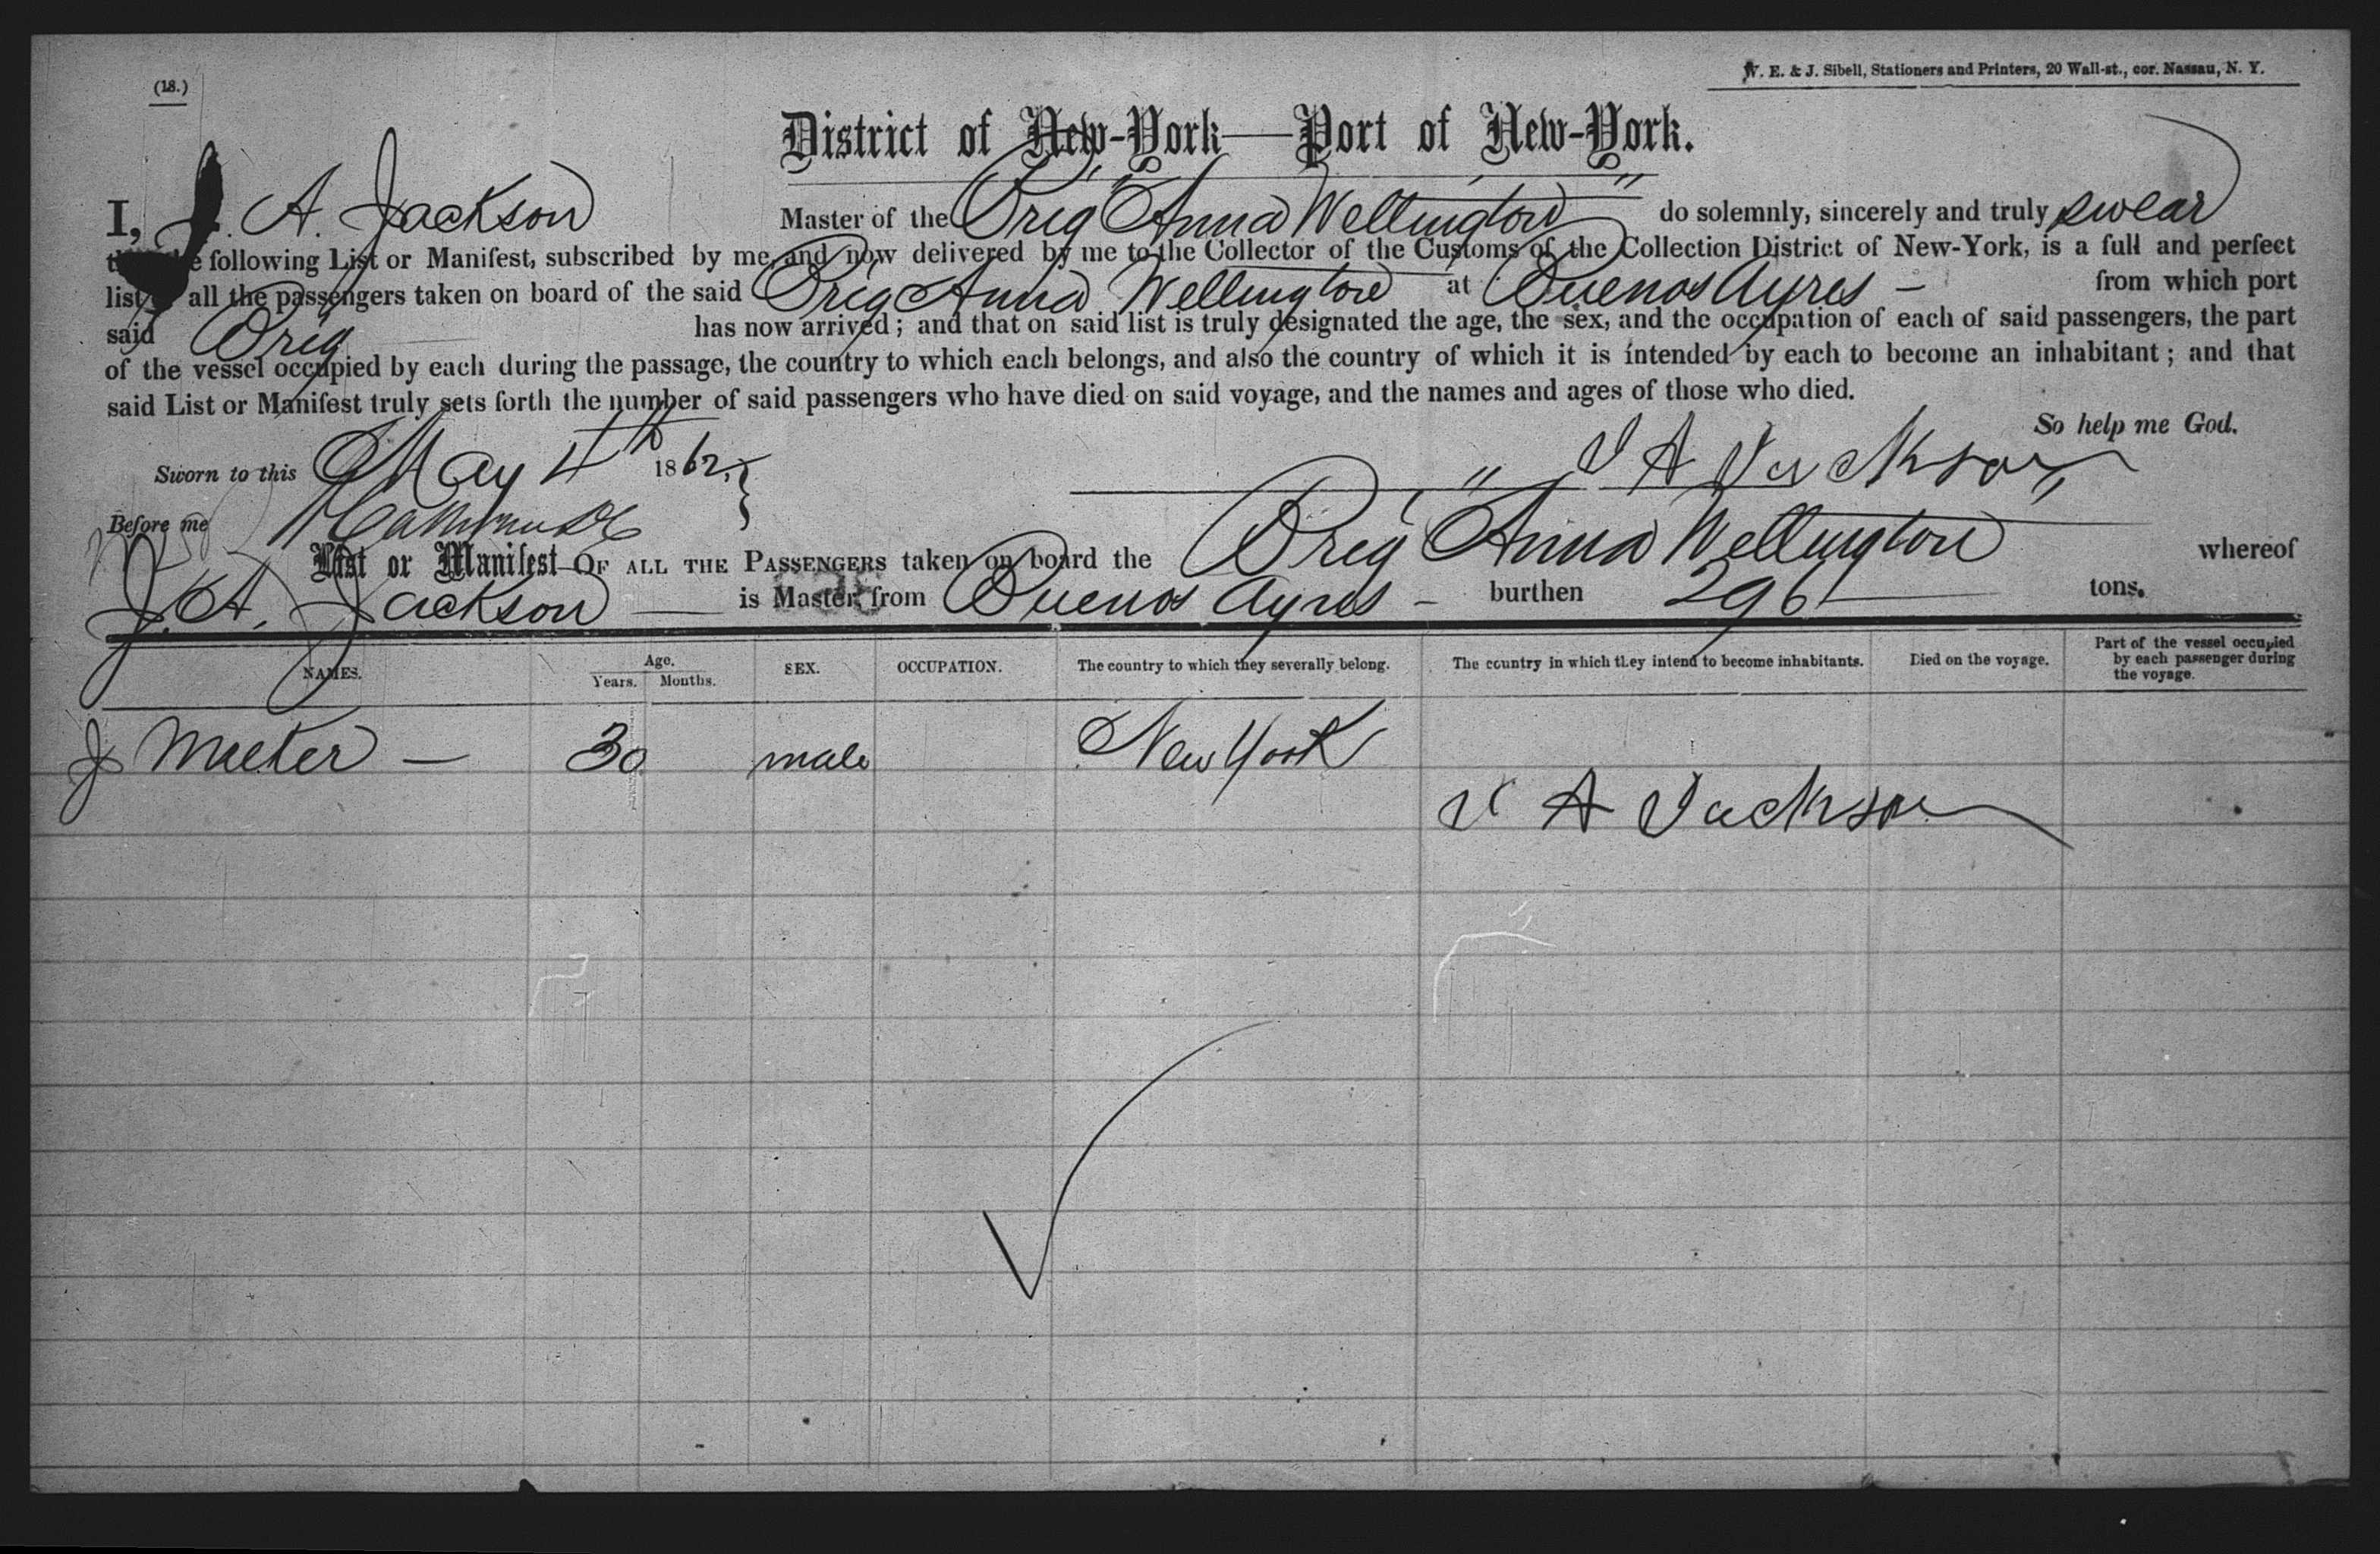 (18.)
W. E. & J. Sibell, Stationers and Printers, 20 Wall-st., cor. Nassau, N. Y.
District of New-York—Port of New-York.
I, J. A. Jackson Master of the Brig "Anna Wellington" do solemnly, sincerely and truly swear
that the following List or Manifest, subscribed by me, and now delivered by me to the Collector of the Customs of the Collection District of New-York, is a full and perfect
list of all the passengers taken on board of the said Brig Anna Wellington at Buenos Ayres — from which port
said Brig has now arrived; and that on said list is truly designated the age, the sex, and the occupation of each of said passengers, the part
of the vessel occupied by each during the passage, the country to which each belongs, and also the country of which it is intended by each to become an inhabitant; and that
said List or Manifest truly sets forth the number of said passengers who have died on said voyage, and the names and ages of those who died.
So help me God.
Sworn to this May 4th 1862, J A Jackson
Before me
List or Manifest OF ALL THE PASSENGERS taken on board the Brig "Anna Wellington" whereof
J. A. Jackson — is Master, from Buenos Ayres — burthen 296 — tons.
NAMES. Age. Years. Months. SEX. OCCUPATION. The country to which they severally belong. The country in which they intend to become inhabitants. Died on the voyage. Part of the vessel occupied by each passenger during the voyage.
J — 30 male New York
J A Jackson